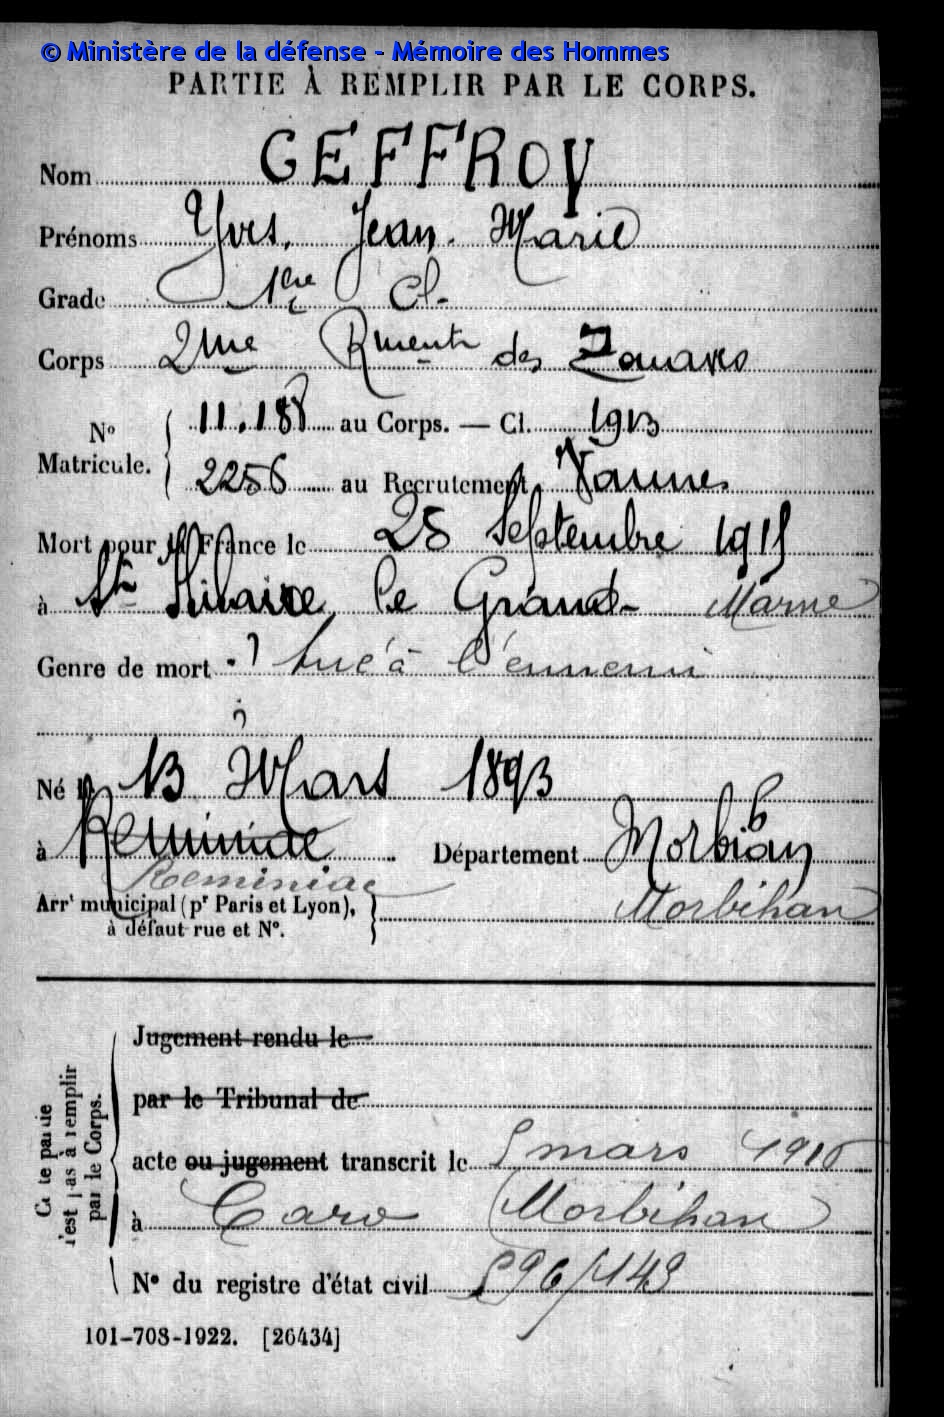 © Ministère de la défense - Mémoire des Hommes
PARTIE À REMPLIR PAR LE CORPS.
Nom GEFFROY
Prénoms Yves, Jean Marie
Grade 1ère Cl.
Corps 2me Rment des Zouaves
No Matricule. 11.188 au Corps. — Cl. 1913
2256 au Recrutement Vannes
Mort pour la France le 25 Septembre 1915
à St Hilaire le Grand Marne
Genre de mort tué à l'ennemi
Né le 13 Mars 1893
à Reminiac Département Morbian
Reminiac
Arrt municipal (pr Paris et Lyon), Morbihan
à défaut rue et No.
Cette partie n'est pas à remplir par le Corps.
Jugement rendu le
par le Tribunal de
acte ou jugement transcrit le mars
à Caro (Morbihan)
No du registre d'état civil
101-708-1922. [26434]